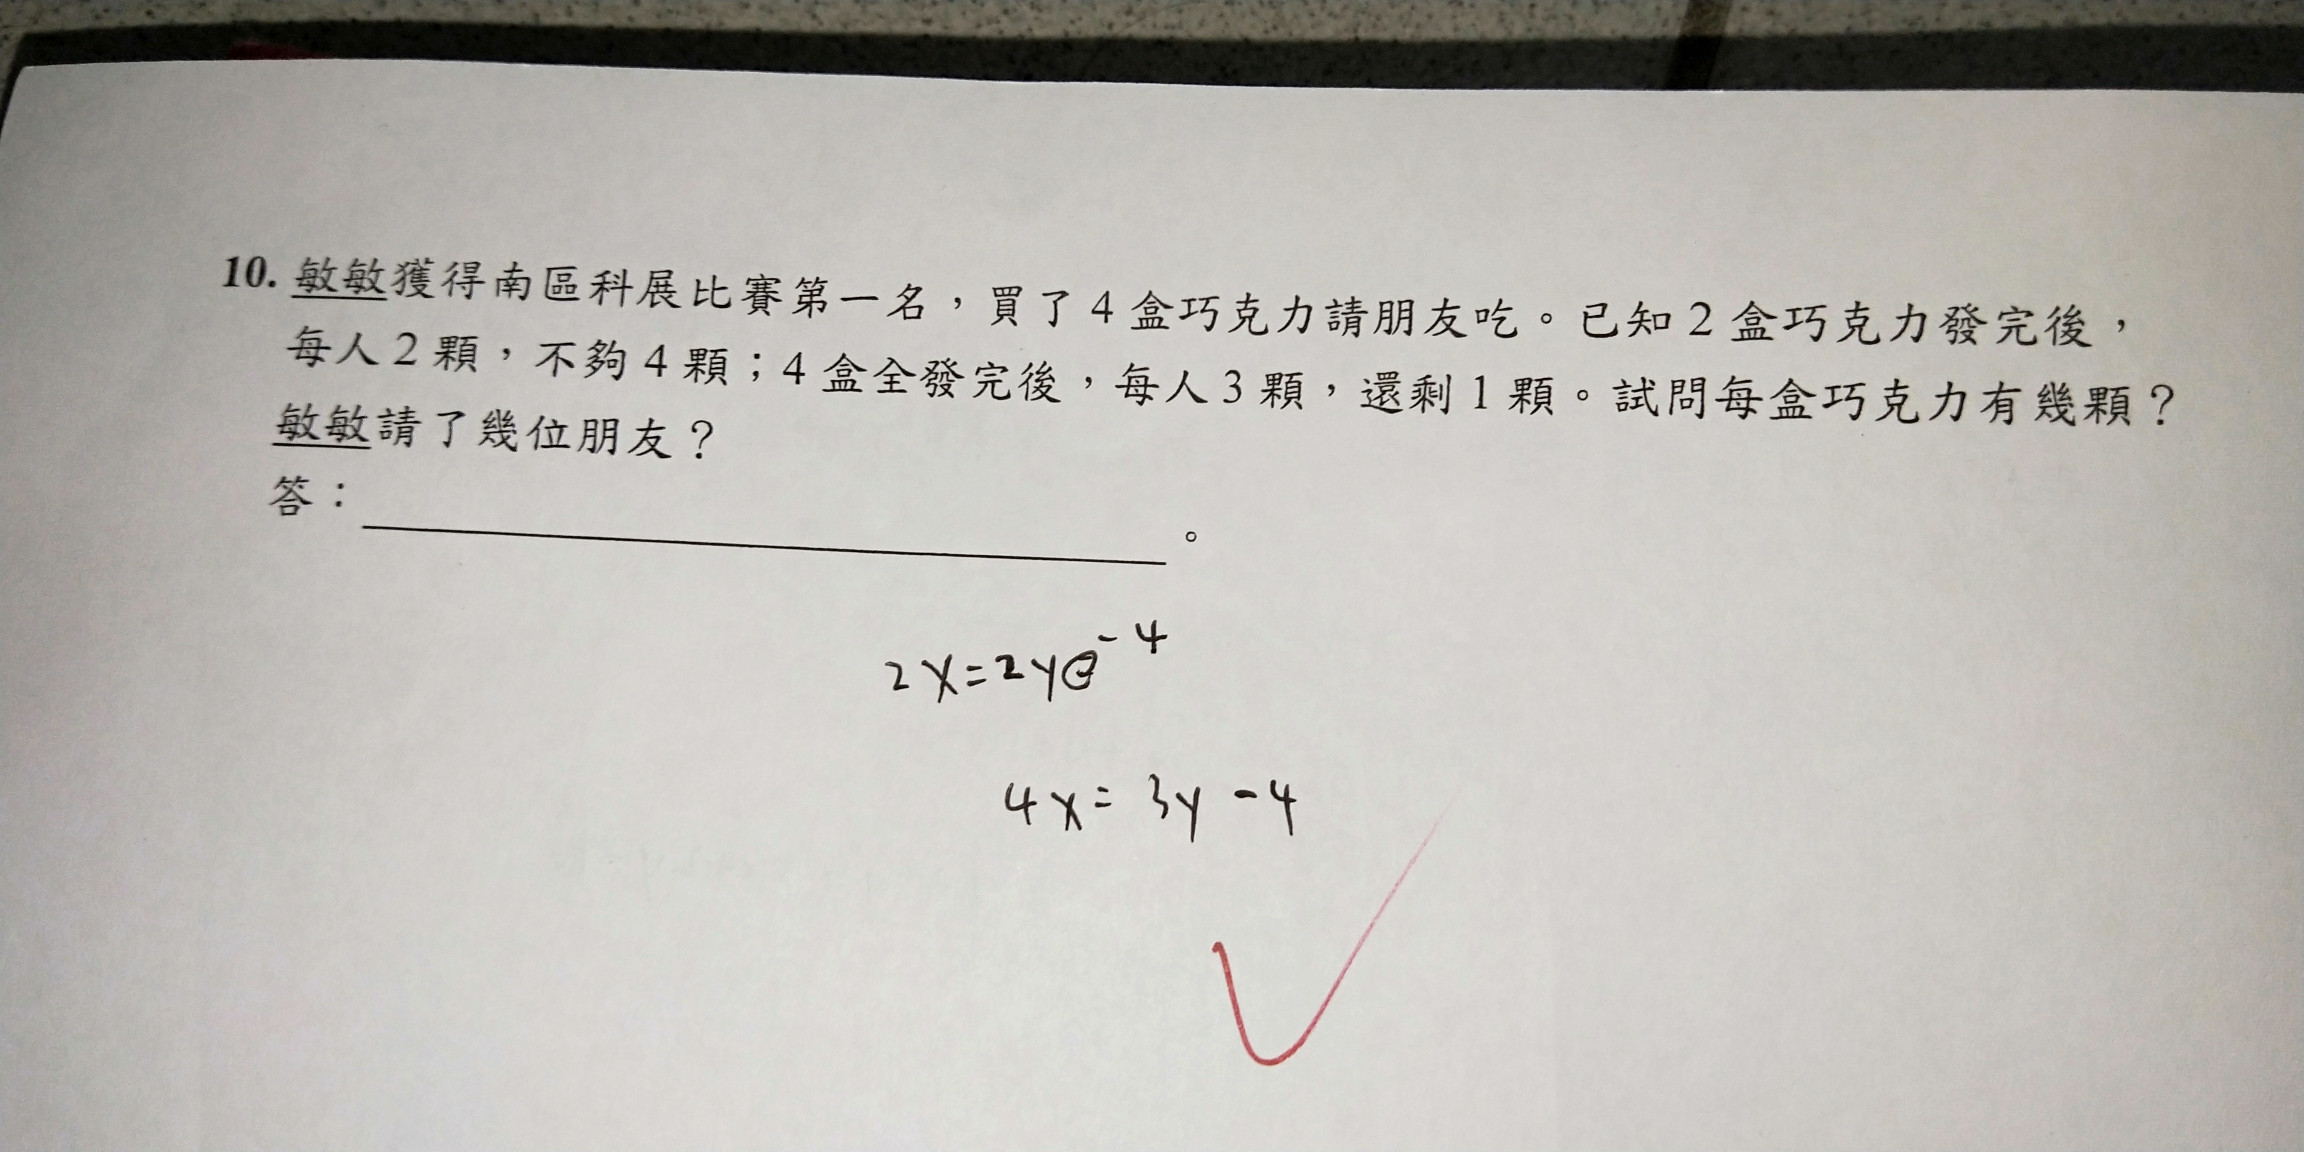 10. 敏敏獲得南區科展比賽第一名，買了4盒巧克力請朋友吃。已知2盒巧克力發完後，
每人2顆，不夠4顆；4盒全發完後，每人3顆，還剩1顆。試問每盒巧克力有幾顆？
敏敏請了幾位朋友？
答：。
2x=2y-4
4x=3y-4